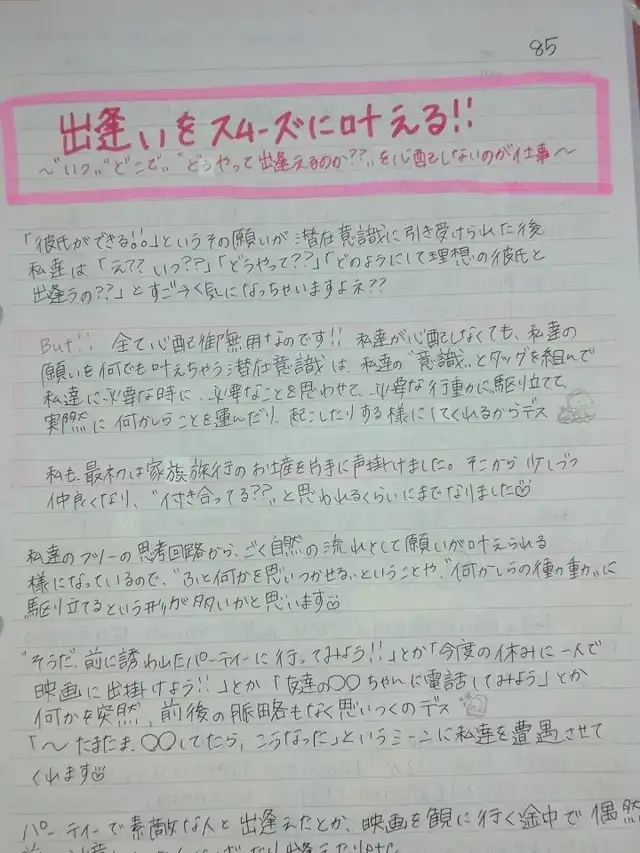 85
出逢いをスムーズに叶える!!
～"いつ""どこで""どうやって出逢えるのか??"を心配しないのが仕事～
「彼氏ができる!!。」というその願いが潜在意識に引き受けられた後
私達は「え?? いつ??」「どうやって??」「どのようにして理想の彼氏と
出逢うの??」とすごーく気になっちゃいますよネ??
But!! 全て心配御無用なのです!! 私達が心配しなくても、私達の
願いを何でも叶えちゃう潜在意識は、私達の"意識"とタッグを組んで
私達に必要な時に、必要なことを思わせて、必要な行動かに駆り立てて
実際に何かしらことを運んだり、起こしたりする様にしてくれるからデス
私も、最初は家族旅行のお土産を片手に声掛けました。そこから少しづつ
仲良くなり、"付き合ってる??"と思われるくらいにまでなりました
私達のフリーの思考回路から、ごく自然の流れとして願いが叶えられる
様になっているので、"ふと何かを思いつかせる"ということや、"何かしらの動"に
駆り立てるという形が多いかと思います
"そうだ、前に誘われたパーティーに行ってみよう!!」とか「今度の休みに一人で
映画に出掛けよう!!」とか「友達の〇〇ちゃんに電話してみよう」とか
何かを突然、前後の脈略もなく思いつくのデス
「～たまたま、〇〇してたら、こうなった」というシーンに私達を遭遇させて
くれます
パーティーで素敵な人と出逢えたとか、映画を観に行く途中で偶然